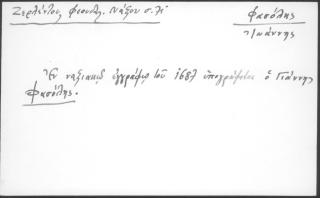 Ζερλέντου, Φεουδλ. Νάξου σ. λ΄
Φασόλης
Ἰωάννης
Ἐν ναξιακῷ ἐγγράφῳ τοῦ 1687 ὑπογράφεται ὁ Γιάννης
Φασόλης.